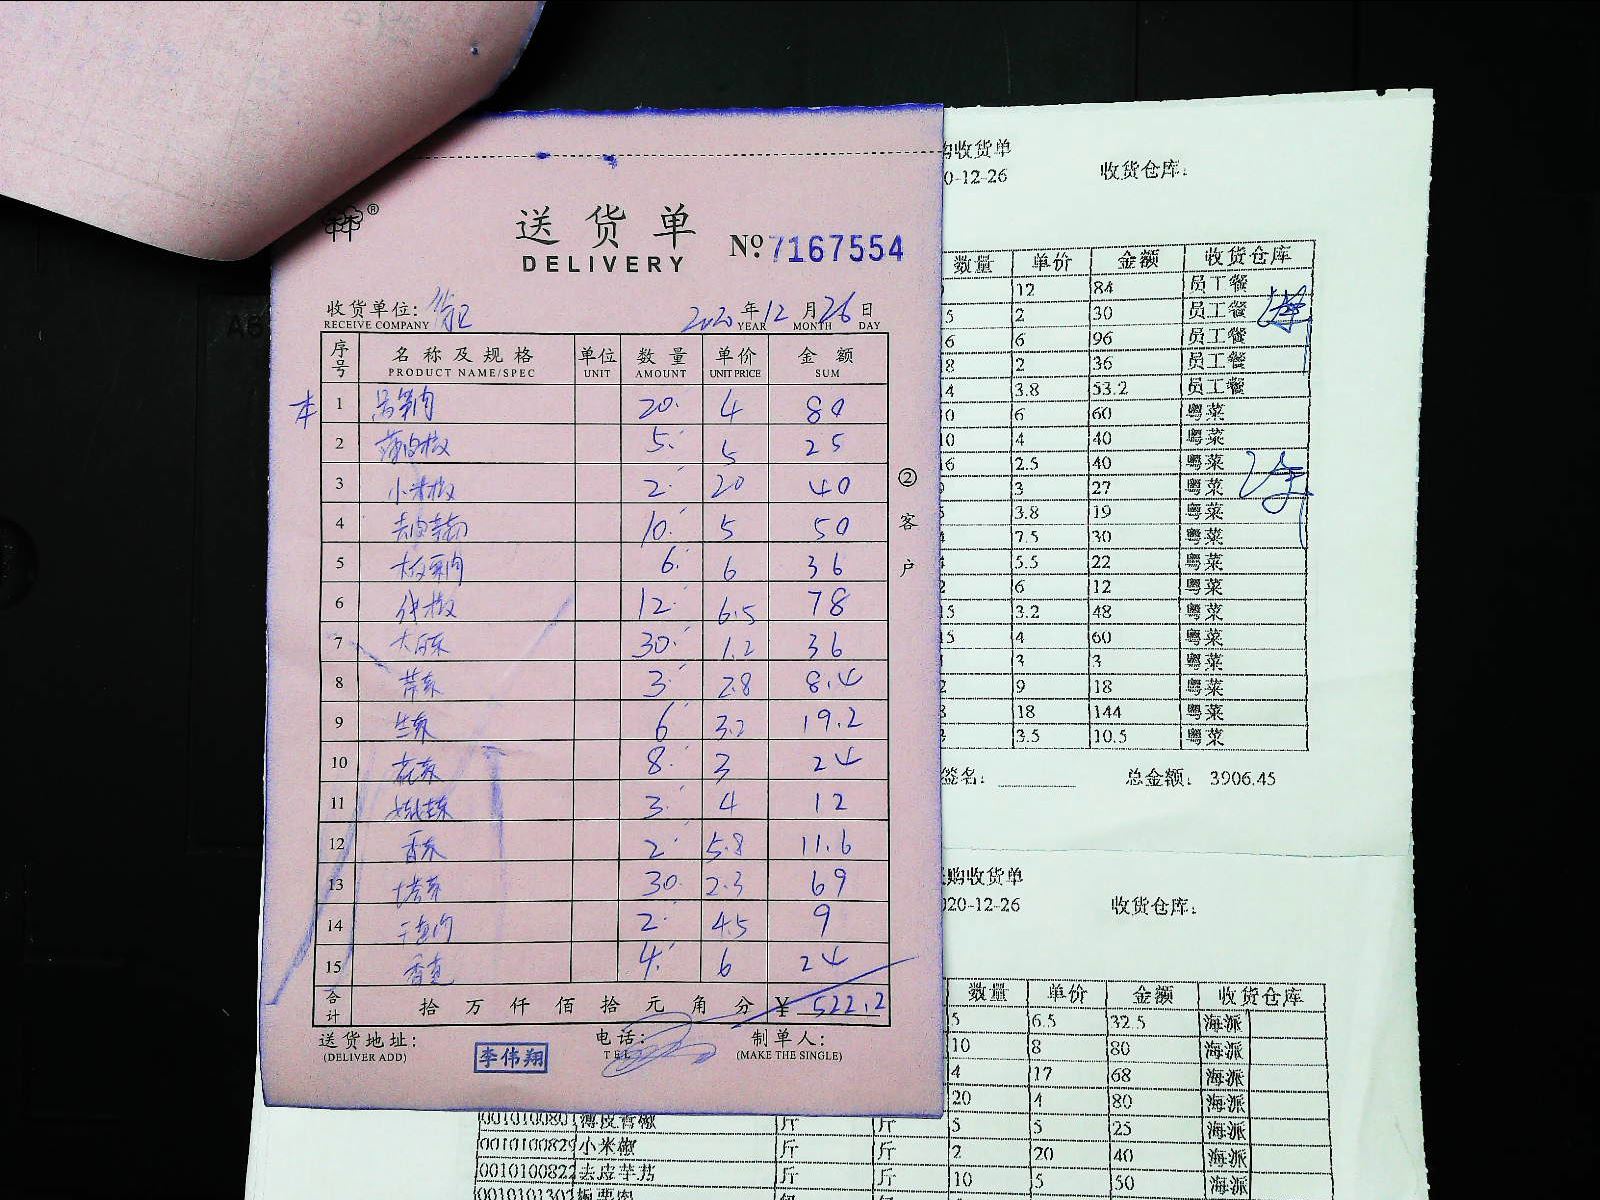 送货单
DELIVERY
№ 7167554
收货单位:
RECEIVE COMPANY
2020年12月26日
YEAR MONTH DAY
序号 名称及规格 单位 数量 单价 金额
PRODUCT NAME/SPEC UNIT AMOUNT UNIT PRICE SUM
本
1 20 4 80
2 薄皮椒 5 5 25
3 小米椒 2 20 40
4 去皮芋艿 10 5 50
5 6 6 36
6 12 6.5 78
7 大白菜 30 1.2 36
8 3 2.8 8.4
9 生菜 6 3.2 19.2
10 花菜 8 3 24
11 3 4 12
12 香菜 2 5.8 11.6
13 30 2.3 69
14 2 4.5 9
15 4 6 24
合计 拾万仟佰拾元角分 ¥ 522.2
②客户
送货地址:
(DELIVER ADD)
李伟翔
电话:
TEL
制单人:
(MAKE THE SINGLE)
购收货单
0-12-26 收货仓库:
数量 单价 金额 收货仓库
12 84 员工餐
5 2 30 员工餐
6 6 96 员工餐
8 2 36 员工餐
4 3.8 53.2 员工餐
0 6 60 粤菜
10 4 40 粤菜
16 2.5 40 粤菜
3 27 粤菜
5 3.8 19 粤菜
7.5 30 粤菜
5.5 22 粤菜
2 6 12 粤菜
15 3.2 48 粤菜
15 4 60 粤菜
3 3 粤菜
2 9 18 粤菜
8 18 144 粤菜
3.5 10.5 粤菜
签名: 总金额: 3906.45
购收货单
020-12-26 收货仓库:
数量 单价 金额 收货仓库
5 6.5 32.5 海派
10 8 80 海派
4 17 68 海派
20 4 80 海派
0010100801 薄皮青椒 斤 斤 5 5 25 海派
0010100829 小米椒 斤 斤 2 20 40 海派
0010100822 去皮芋艿 斤 斤 10 5 50 海派